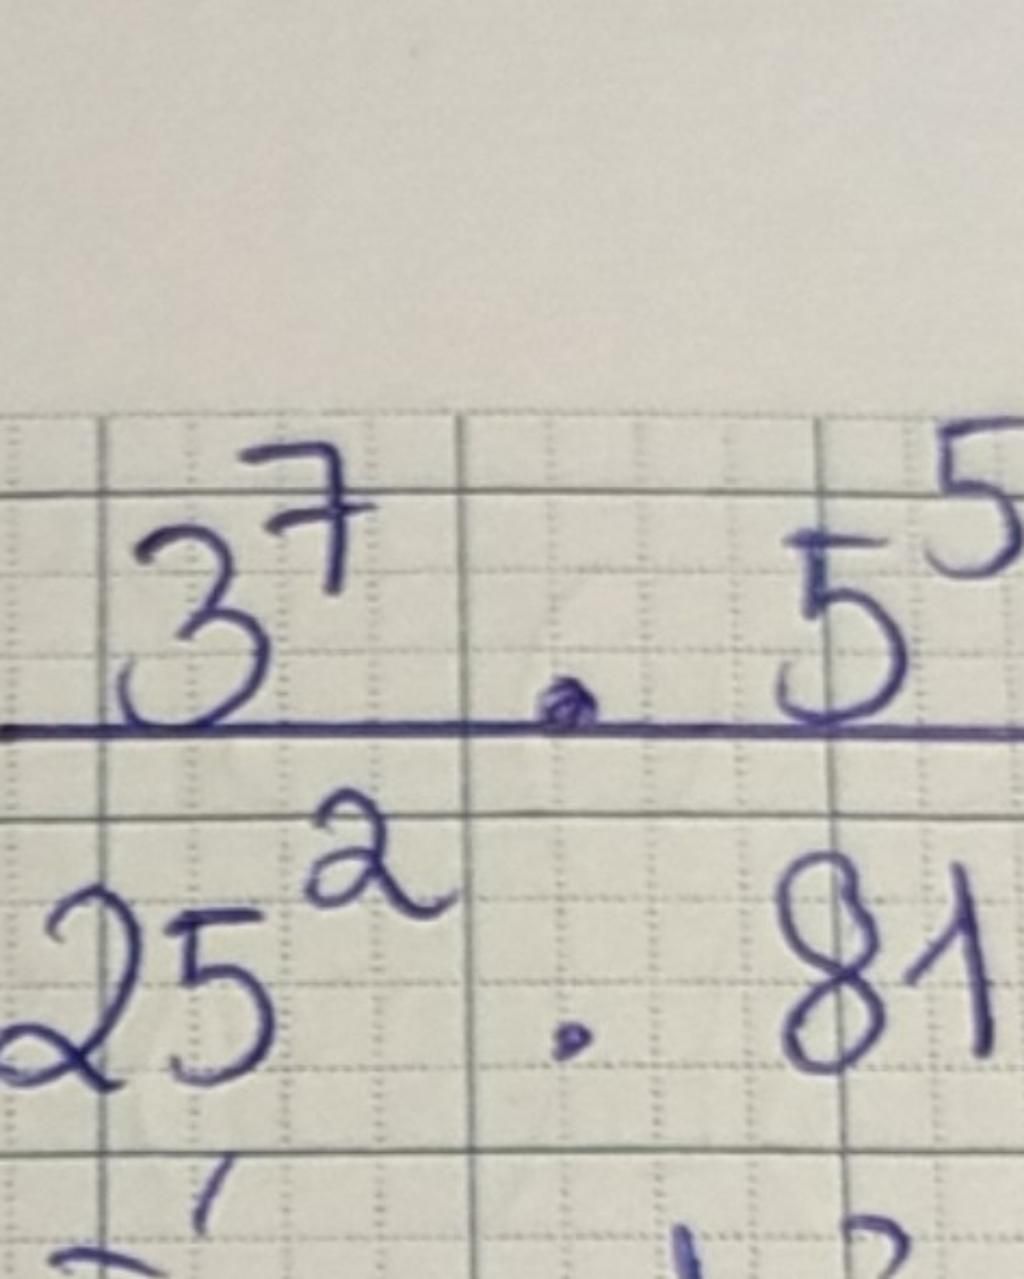 3⁷ . 5⁵
25² . 81